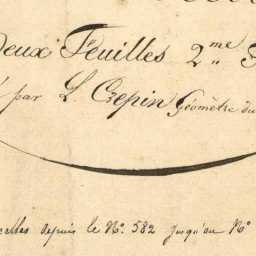 Deux Feuilles 2.me
par L. Crepin Géomètre du
celles depuis le N.o 582 jusqu'au N.o